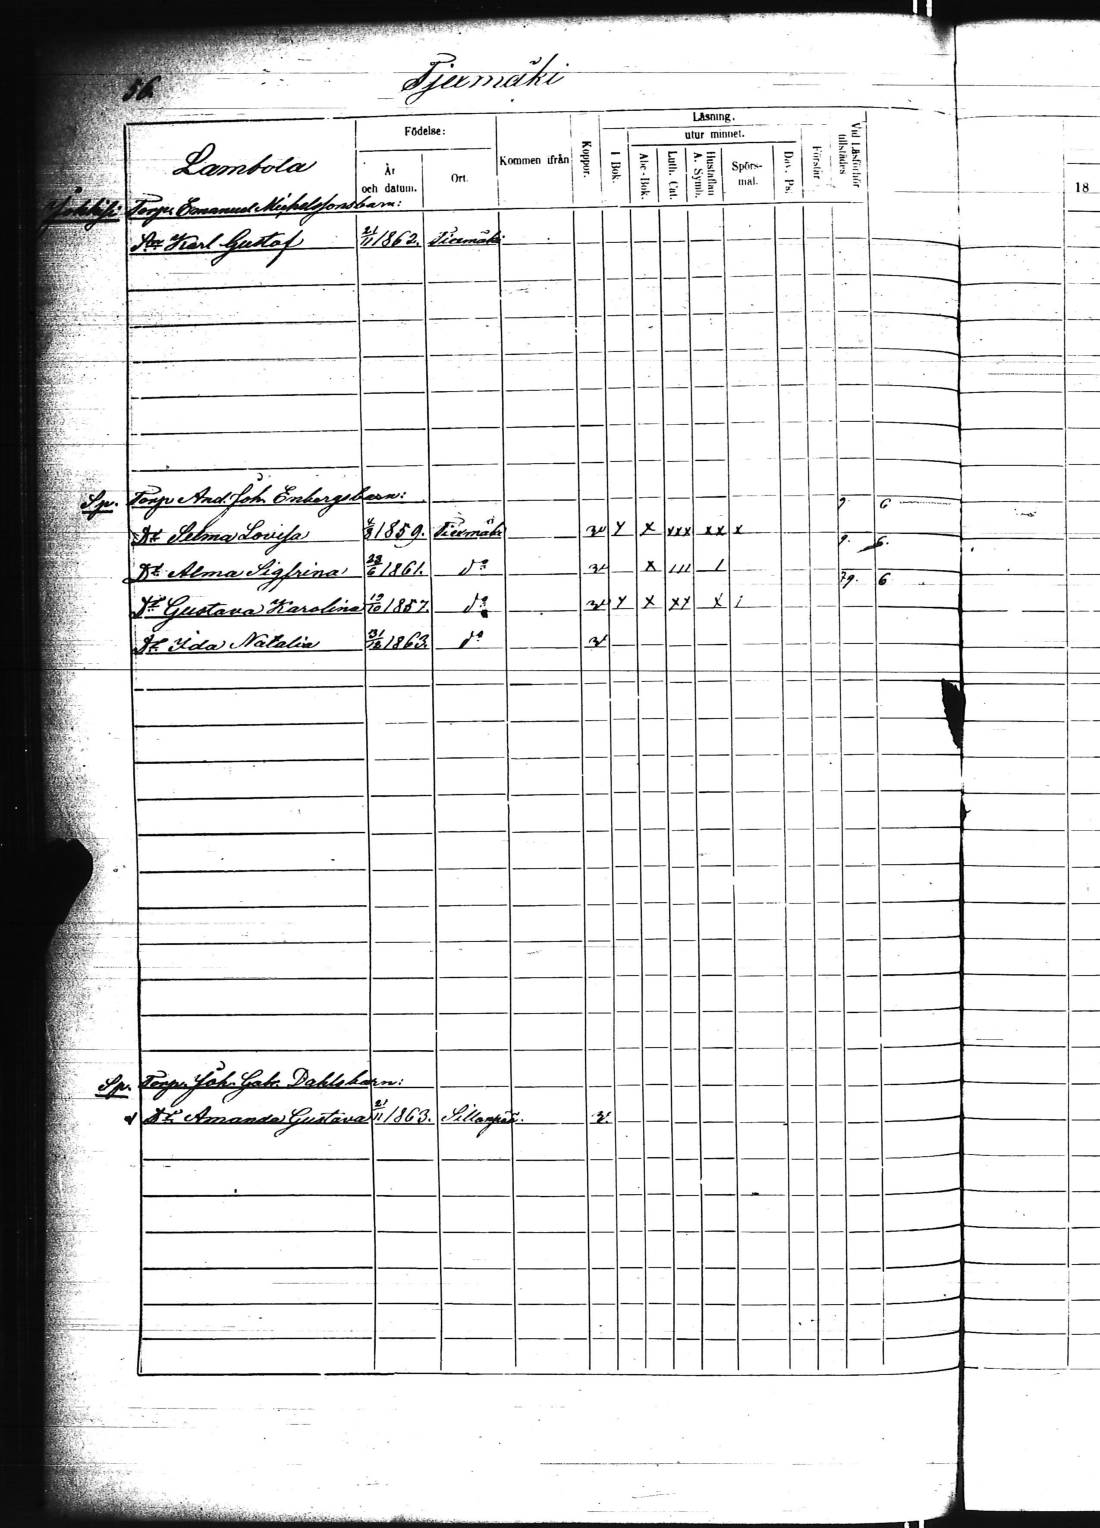 56. Tjermäki
Läsning.
Födelse:
utur minnet.
Lambola
År och datum.
Ort.
Kommen ifrån
Koppor.
I Bok.
Abc-Bok.
Luth. Cat.
Hustaflan A. Symb.
Spörs-mal.
Dav. Ps.
Förstår
Vid Läsförhör tillstädes
18
Torp. Emanuel Michelssons barn:
Sn Karl Gustaf 21/11 1862. Tiermäki
Sp. Torp And. Joh. Enbergs barn: 9 6
Dt Selma Lovisa 4/8 1859. Tiermäki v x x xxx xx x 9. 6.
Dt Alma Sigfrina 23/6 1861. do v x III I 79. 6
Dt Gustava Karolina 19/10 1857. do v x x xx x I
Dt Ida Natalia 31/12 1863. do v
Sp. Torp. Joh. Gab. Dahls barn:
Dr Amanda Gustava 21/11 1863. Sillanpää. v.